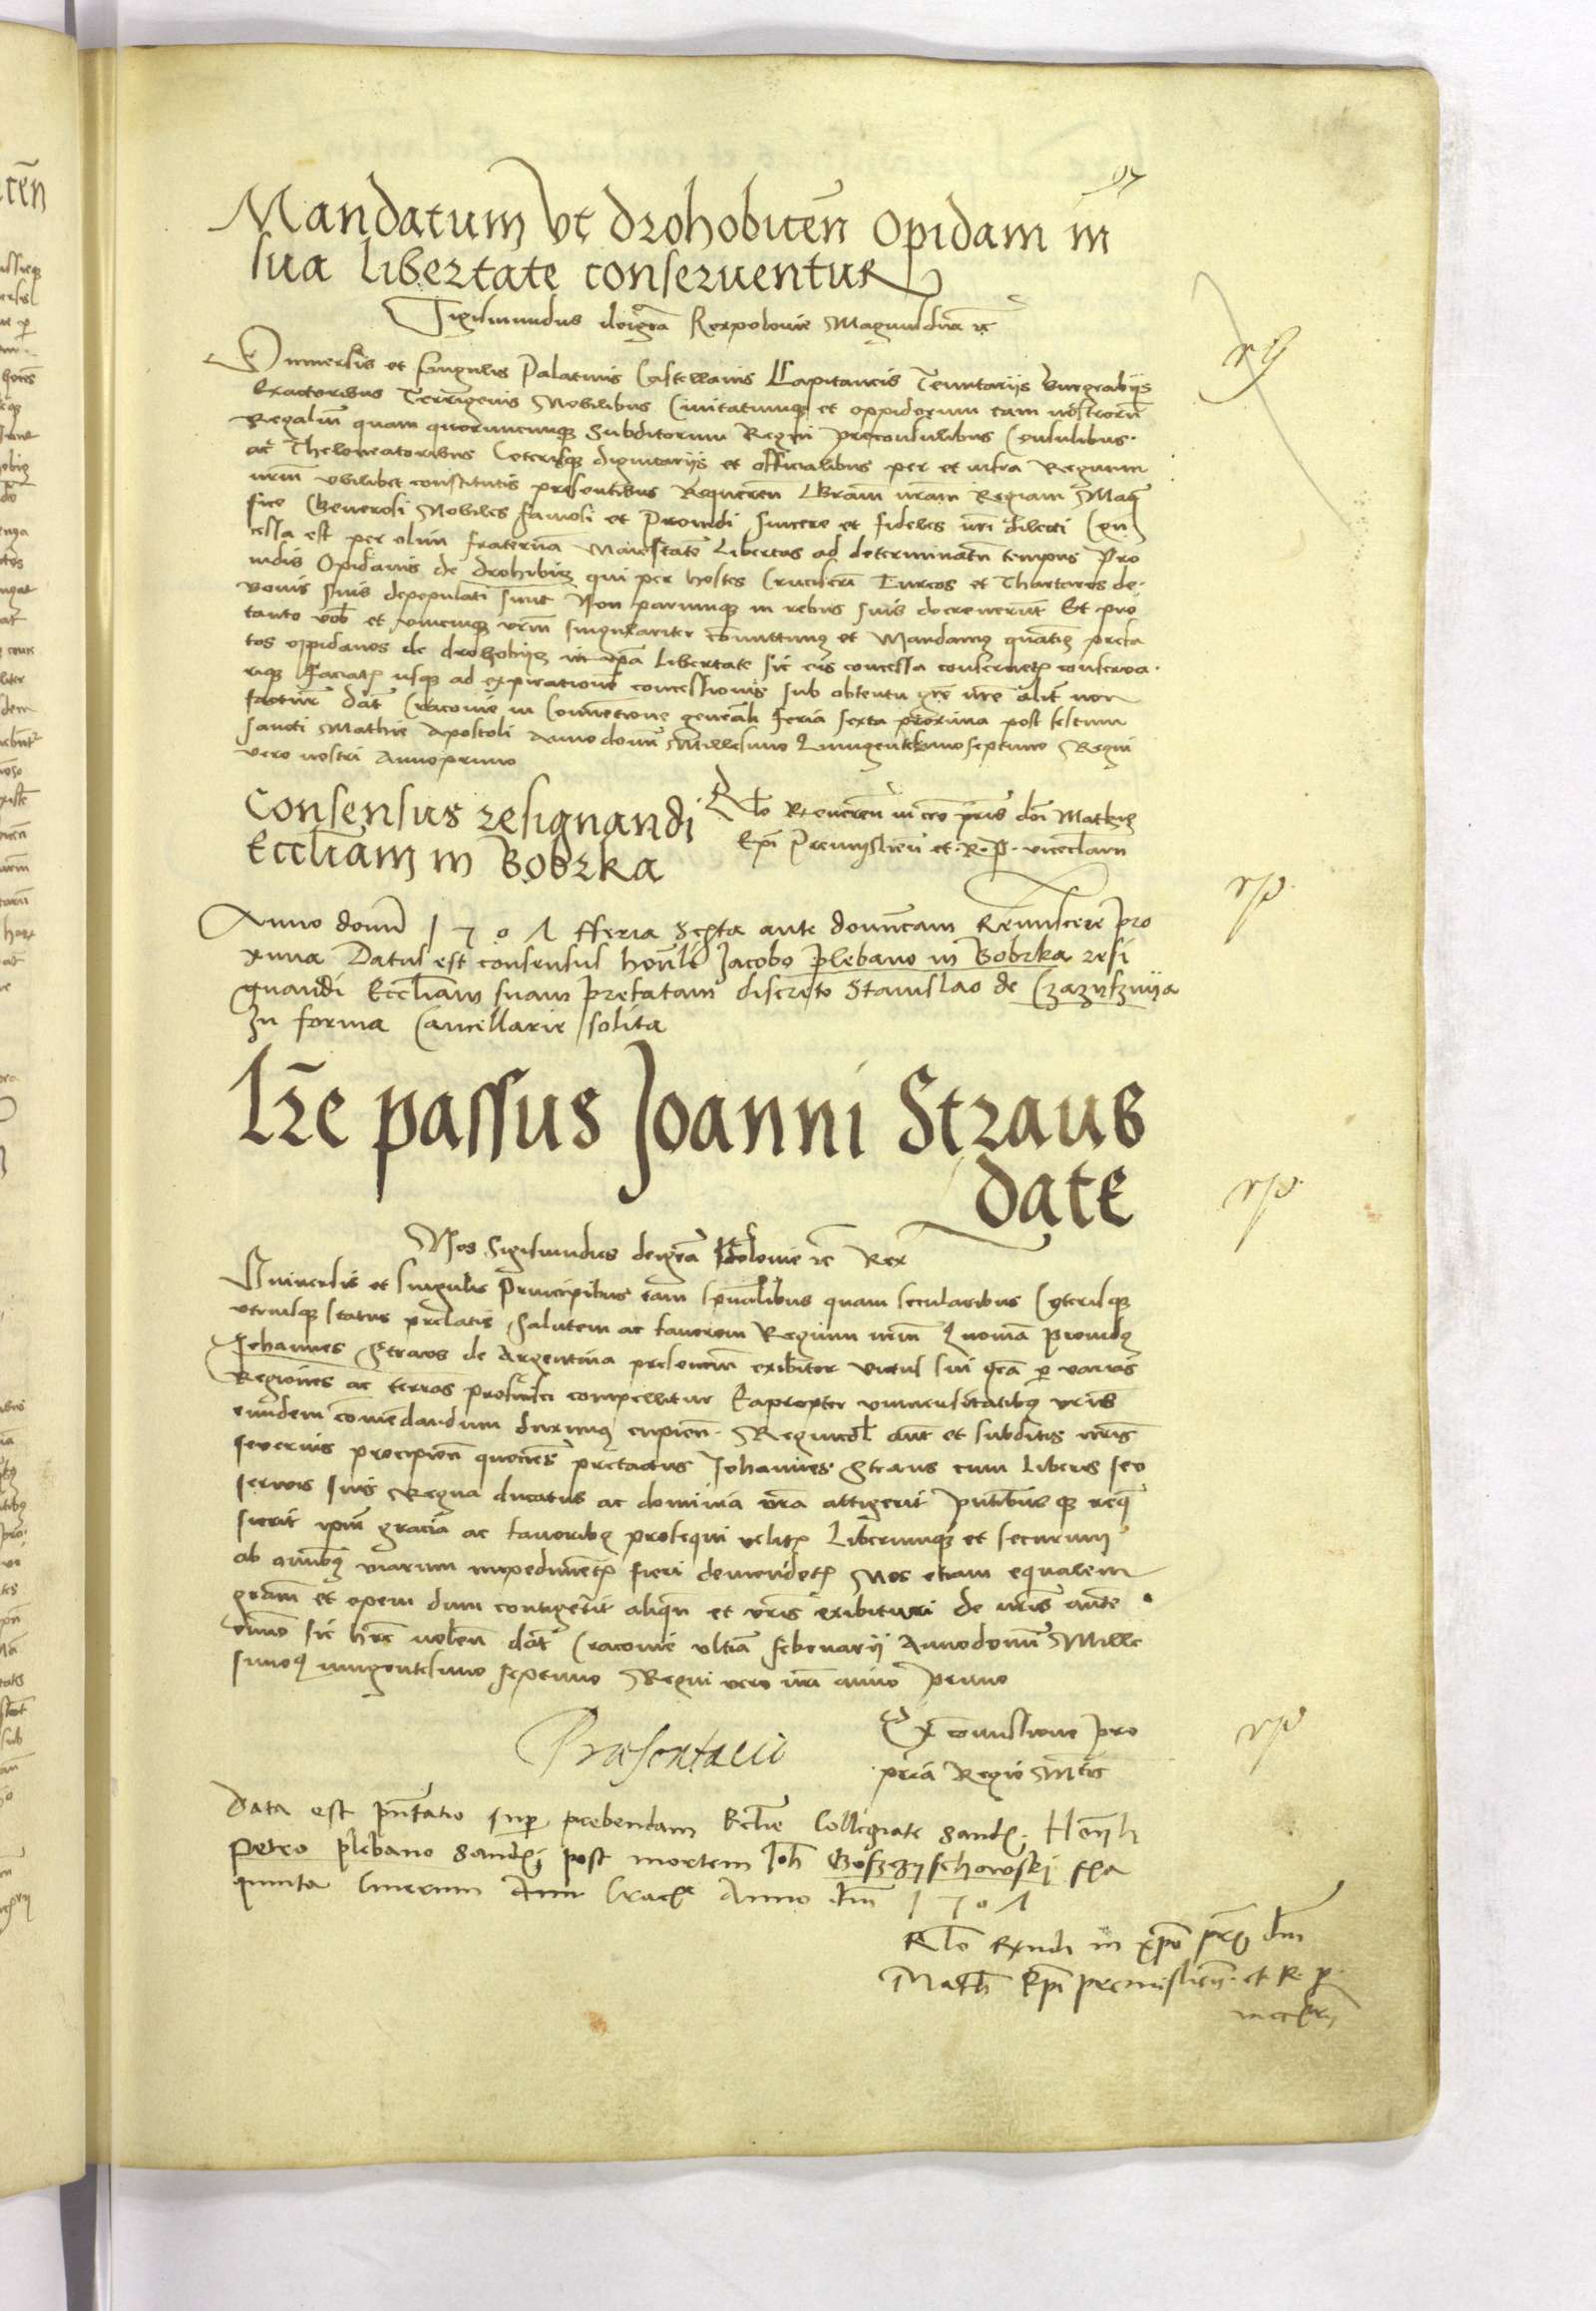 97
Mandatum vt drohobicen̄ opidani in
sua libertate conserventur
Sigismundus dei gr̄a Rex polonie Magnus dux rc̄
Vniversis et singulis Palatinis Castellanis Capitaneis Tenutariis Burgrabiis
Exactoribus Terrigenis Nobilibus Civitatumq et oppidorum tam nostrorū
Regaliū quam quorumcumq Subditorum Regni preconsulibus Consulibus
ac Theloneatoribus Ceterisq dignitariis et officialibus per et infra Regnum
nrm̄ vbilibet constitutis presentibus Requiren̄ gr̄am nr̄am Regiam Mag
fice Generosi Nobiles famosi et Providi sincere et fideles nr̄i dilecti Con
cessa est per olim fraternā Maiestatē Libertas ad determinatū tempus Pro
vidis Opidanis de drohibiz qui per hostes Cruciferi Turcos et Thartaros de
bonis suis depopulati sunt Non parumq in rebus suis decreverūt Et pro
tanto vob̄ et vnicuiq vr̄m singulariter comittimq et Mandamq quatq prefa
tos oppidanos de drohobijz in ip̄a Libertate sic eis concessa conservetꝭ conserva
riq faciatꝭ usq ad expirationē concessionis sub obtentu gr̄e nr̄e alit̄ non
facturi dat̄ Cracovie in Conventione generali feria sexta proxima post festum
sancti Mathie Apostoli Anno domi Millesimo Quingentesimo septimo Regni
vero nostri Anno primo
Consensus resignandi
Eccl̄iam in Bobrka
Rl̄o Reveren̄ in cro pr̄is dn̄i Mathie
Ep̄i Premislien̄ et R. P. vicecl̄arii
Anno domi 1507 fferia Sexta ante domīcam Reminiscere pro
xima Datus est consensus honl̄i Jacobo plebano in Bobrka resi
gnandi Eccl̄iam suam prefatam discreto Stanislao de
In forma Cancellarie solita
Lr̄e passus Joanni Straus
date
Nos Sigismundus dei gr̄a Polonie rc̄ Rex
Vniversis et singulis Principibus tam spūalibus quam secularibus Ceterisq
utriusq status prelatis Salutem ac favorem Regium nrm̄ Quoniā providq
Johannes Straus de Argentina presencm̄ exhibitor victus sui grā p varias
Regiones ac terras proficisci compellitur Eapropter vniversitatibq vr̄is
eundem comēdandum duximq cupien̄ Regnicol̄ aut̄ et subditis nr̄is
severius precipien̄ quociēs pretactus Johannes Straus cum liberis seu
servis suis Regna ducatus ac dominia nr̄a attigerit pn̄tibus q requi
sierit ip̄m gracia ac favoribq prosequi velitꝭ liberumq et securum
ab omībq viarum impedimētꝭ fieri demandetꝭ Nos etiam equalem
grām et opem dum contigerit aliqn̄ et vr̄is exibituri de nr̄is
dat̄ Cracovie vltīa februarii Anno domi Mille
simoq uingentesimo septimo Regni vero nr̄i anno primo
Ex comissione pro
pria Regie Mt̄is
Presentacio
Data est pn̄tatio sup prebendam Ecl̄ie Collegiate Sandꝭ Honl̄i
Petro plebano Sandꝭ post mortem Joh̄ fꝭa
quinta Cinerum Crac Anno dn̄i 1507
Rl̄o Rxndi in xpo prīs dn̄i
Math̄ Ep̄i premislien̄ et R. P.
vicecl̄rii